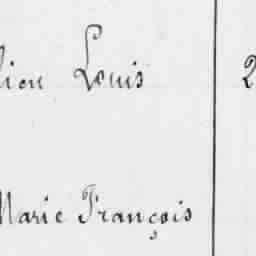 Louis 2
Marie François